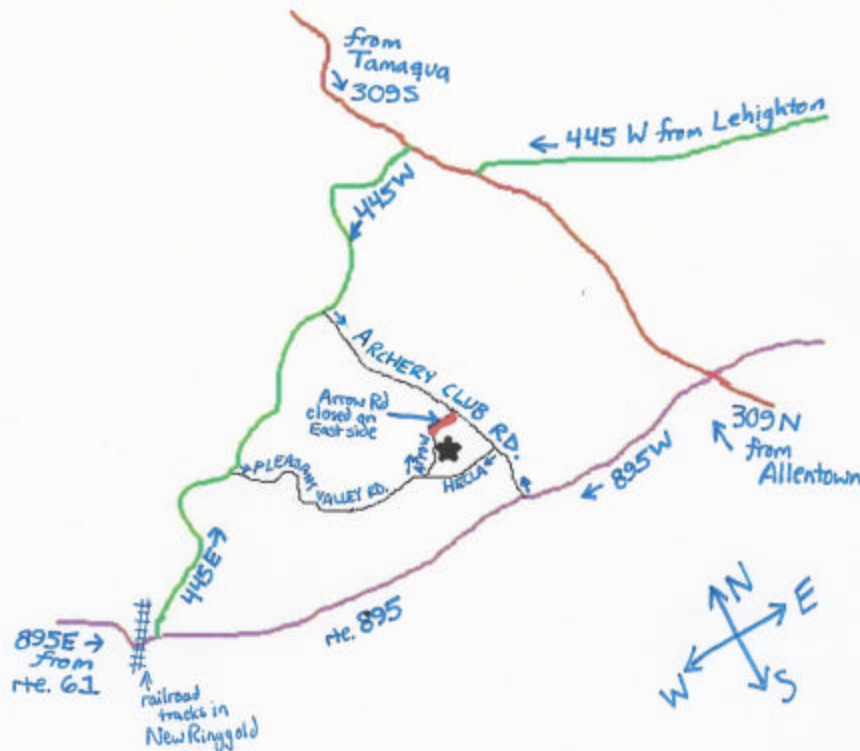 from
Tamaqua
309S
← 445 W from Lehighton
←445W
ARCHERY CLUB RD.
Arrow Rd
closed on
East side
ARROW
HECLA
PLEASANT
VALLEY RD.
309N
from
Allentown
← 895W
445E→
rte. 895
895E →
from
rte. 61
railroad
tracks in
New Ringgold
N
E
W
S